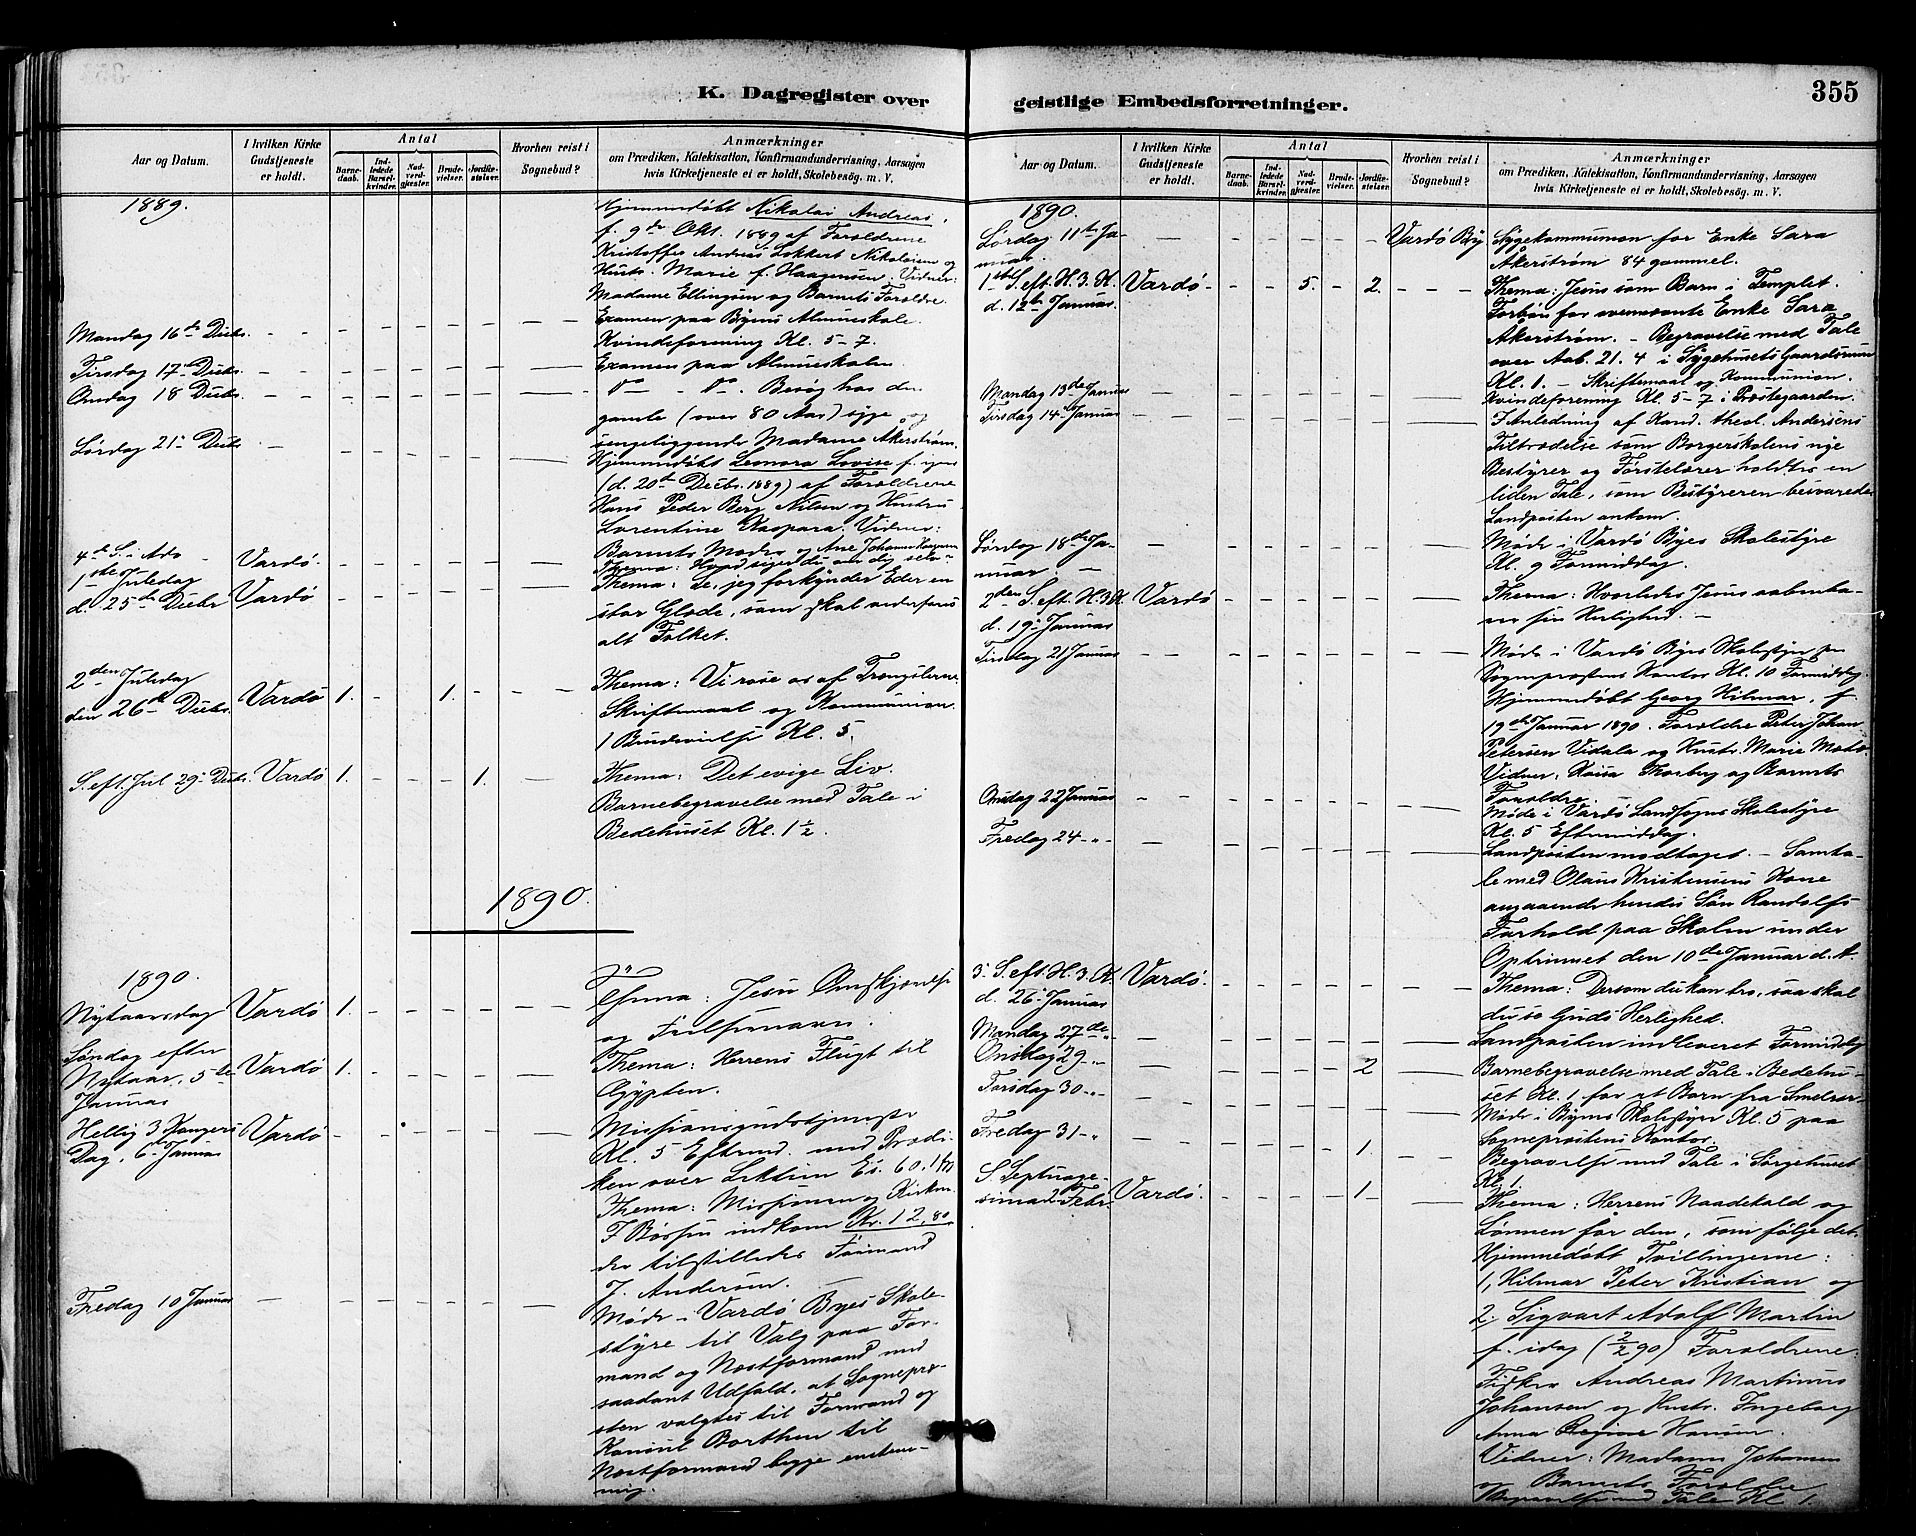 355
K. Dagregister over
Aar og Datum.
I hvilken Kirke Gudstjeneste er holdt.
Antal
Barnedaab.
Indledede Barselkvinder.
Nadverdgjester.
Brudevielser.
Jordfæstelser.
Hvorhen reist i Sognebud?
Anmærkninger
om Prædiken, Katekisation, Konfirmandundervisning, Aarsagen
hvis Kirketjeneste ei er holdt, Skolebesøg. m. V.
1889.
Hjemmedøbt Nikolai Andreas,
f. 9de Okt. 1889 af Forældrene
Kristoffer Andreas Lokkert Nikolaisen og
Hustr. Marie f. Haagensen. Vidner:
Madame Ellingsen og Barnets Forældre.
Mandag 16de Decbr.
Examen paa Byens Almueskole.
Kvindeforening Kl. 5-7.
Tirsdag 17de Decbr.
Examen paa Almueskolen.
Onsdag 18 Decbr.
do — do. Besøg hos den
gamle (over 80 Aar) syge og
sengeliggende Madame Åkerstrøm.
Lørdag 21de Decbr.
Hjemmedøbt Leonora Lovise f. igaar
(d. 20de Decbr. 1889) af Forældrene
Hans Peder Berg Nilsen og Hustru
Lorentine Kaspara. Vidner:
Barnets Moder og Ane Johanne
4de S. i Adv. Vardø.
Thema: Hvad siger du om dig selv
1ste Juledag
d. 25de Decbr Vardø
Thema: Se, jeg forkynder Eder en
stor Glæde, som skal vederfares
alt Folket.
2den Juledag
den 26de Decbr. Vardø 1. 1.
Thema: Vi rose os af Trængslerne
Skriftemaal og Kommunion.
1 Brudevielse Kl. 5.
S. eft. Jul 29de Decbr. Vardø 1. 1.
Thema: Det evige Liv.
Barnebegravelse med Tale i
Bedehuset Kl. 1½.
1890.
1890.
Nytaarsdag Vardø 1.
Thema: Jesu Omskjærelse
og Frelsernavn.
Søndag efter
Nytaar, 5te
Januar Vardø 1.
Thema: Herrens Flugt til
Ægypten.
Hellig 3 Kongers
Dag, 6te Januar Vardø
Missionsgudstjeneste
Kl. 5 Eftmd. med Prædi-
ken over Lektien Es. 60, 1 fm
Thema: Missionen og Kirken.
I Bøssen indkom Kr. 12,80
der tilstilledes Formand
J. Andersen.
Fredag 10 Januar
Møde i Vardø Byes Skole-
styre til Valg paa For-
mand og Næstformand med
saadant Udfald, at Sognepræ-
sten valgtes til Formand og
Konsul Borthen til
Næstformand begge enstem-
mig.
geistlige Embedsforretninger.
Aar og Datum.
I hvilken Kirke Gudstjeneste er holdt.
Antal
Barnedaab.
Indledede Barselkvinder.
Nadverdgjester.
Brudevielser.
Jordfæstelser.
Hvorhen reist i Sognebud?
Anmærkninger
om Prædiken, Katekisation, Konfirmandundervisning, Aarsagen
hvis Kirketjeneste ei er holdt, Skolebesøg. m. V.
1890.
Lørdag 11te Ja-
nuar. Vardø By
Sygekommunion for Enke Sara
Åkerstrøm 84 gammel.
1ste S. eft. H. 3. K.
d. 12te Januar. Vardø. 5. 2.
Thema: Jesus som Barn i Templet.
Forbøn for ovennævnte Enke Sara
Åkerstrøm. — Begravelse med Tale
over Aab. 21. 4 i Sygehusets Gaardsrum
Kl. 1. — Skriftemaal og Kommunion.
Mandag 13de Januar
Kvindeforening Kl. 5-7 i Præstegaarden.
Tirsdag 14 Januar
I Anledning af Kand. theol. Andersens
Tiltrædelse som Borgerskolens nye
Bestyrer og Førstelærer holdtes en
liden Tale, som Bestyreren besvarede.
Landposten ankom.
Lørdag 18de Ja-
nuar.
Møde i Vardø Byes Skolestyre
Kl. 9 Formiddag.
2den S. eft. H. 3 K.
d. 19de Januar Vardø
Thema: Hvorledes Jesus aabenba-
rer sin Herlighed. —
Tirsdag 21 Januar
Møde i Vardø Byes Skolestyre paa
Sognepræstens Kontor Kl. 10 Formiddag.
Hjemmedøbt Georg Hilmar, f.
19de Januar 1890. Forældre Peter Johan
Petersen Vidala og Hustr. Marie
Vidner: Kaisa Thorberg og Barnets
Forældre.
Onsdag 22 Januar
Møde i Vardø Landsogns Skolestyre
Kl. 5 Eftermiddag.
Fredag 24 -"-
Landposten modtaget. — Samta-
le med Olaus Kristensens Kone
angaaende hendes Søn Randolfs
Forhold paa Skolen under
Optrinnet den 10de Januar d. A.
3. S. eft. H. 3. K.
d. 26 Januar Vardø.
Thema: Dersom du kan tro, saa skal
du se Guds Herlighed.
Mandag 27de "
Landposten indleveret Formiddag
Onsdag 29 -"- 2
Barnebegravelse med Tale i Bedehu-
set Kl. 1 for et Barn fra
Torsdag 30 -"-
Møde i Byens Skolestyre Kl. 5 paa
Sognepræstens Kontor.
Fredag 31 -" 1.
Begravelse med Tale i Sørgehuset
Kl. 1.
S. Septuage-
sima d. 2 Febr. Vardø. 1
Thema: Herrens Naadekald og
Lønnen for den, som følge det.
Hjemmedøbt Tvillingerne:
1, Hilmar Peter Kristian og
2. Sigvart Adolf Martin
f. idag (2/2 90) Forældrene:
Fisker Andreas Martinus
Johansen og Hustr. Ingeborg
Anna Regine Hansen.
Vidner: Madame Johansen
og Barnets Forældre
Begravelse med Tale Kl 1.